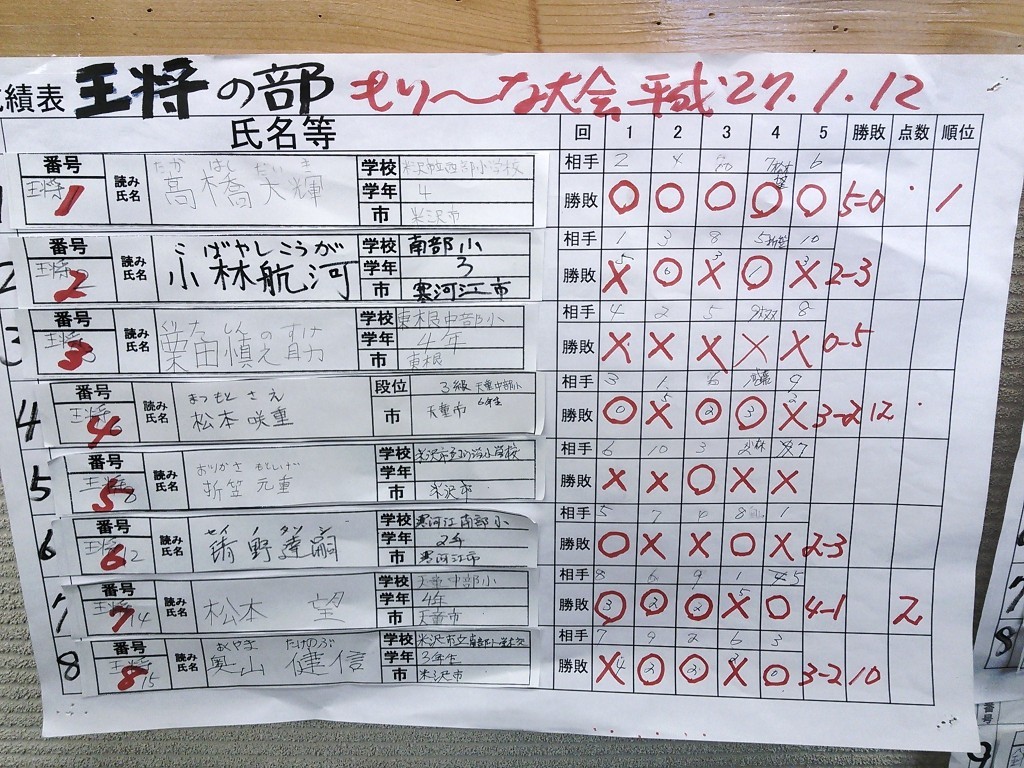 績表 王将の部 もり～な大会 平成'27.1.12
氏名等 回 1 2 3 4 5 勝敗 点数 順位
1 番号 王将 1 読み 氏名 たか はし だい き 高橋大輝 学校 学年 4 市 米沢市
相手 2 4 10 7 6
勝敗 ○ ○ ○ ○ ○ 5-0 1
2 番号 王将 2 読み 氏名 こばやしこうが 小林航河 学校 南部小 学年 3 市 寒河江市
相手 1 3 8 5 10
勝敗 × ○ × ○ × 2-3
3 番号 王将 3 読み 氏名 学校 東根中部小 学年 4年 市 東根
相手 4 2 5 9 8
勝敗 × × × × × 0-5
4 番号 王将 4 読み 氏名 まつもと さえ 松本 咲重 段位 3級 天童中部小 6年生 市 天童市
相手 3 1 6 9
勝敗 ○ × ○ ○ × 3-2 12
5 番号 王将 5 読み 氏名 おりかさ もとしげ 折笠 元重 学校 学年 市 米沢市
相手 6 10 3 小林 7
勝敗 × × ○ × ×
6 番号 王将 6 読み 氏名 学校 寒河江南部小 学年 2年 市 寒河江市
相手 5 7 4 8 1
勝敗 ○ × × ○ × 2-3
7 番号 王将 7 14 読み 氏名 松本 望 学校 天童中部小 学年 4年 市 天童市
相手 8 6 9 1 5
勝敗 ○ ○ ○ × ○ 4-1 2
8 番号 王将 8 15 読み 氏名 おくやま たけのぶ 奥山 健信 学校 学年 3年生 市 米沢市
相手 7 9 2 6 3
勝敗 × ○ ○ × ○ 3-2 10